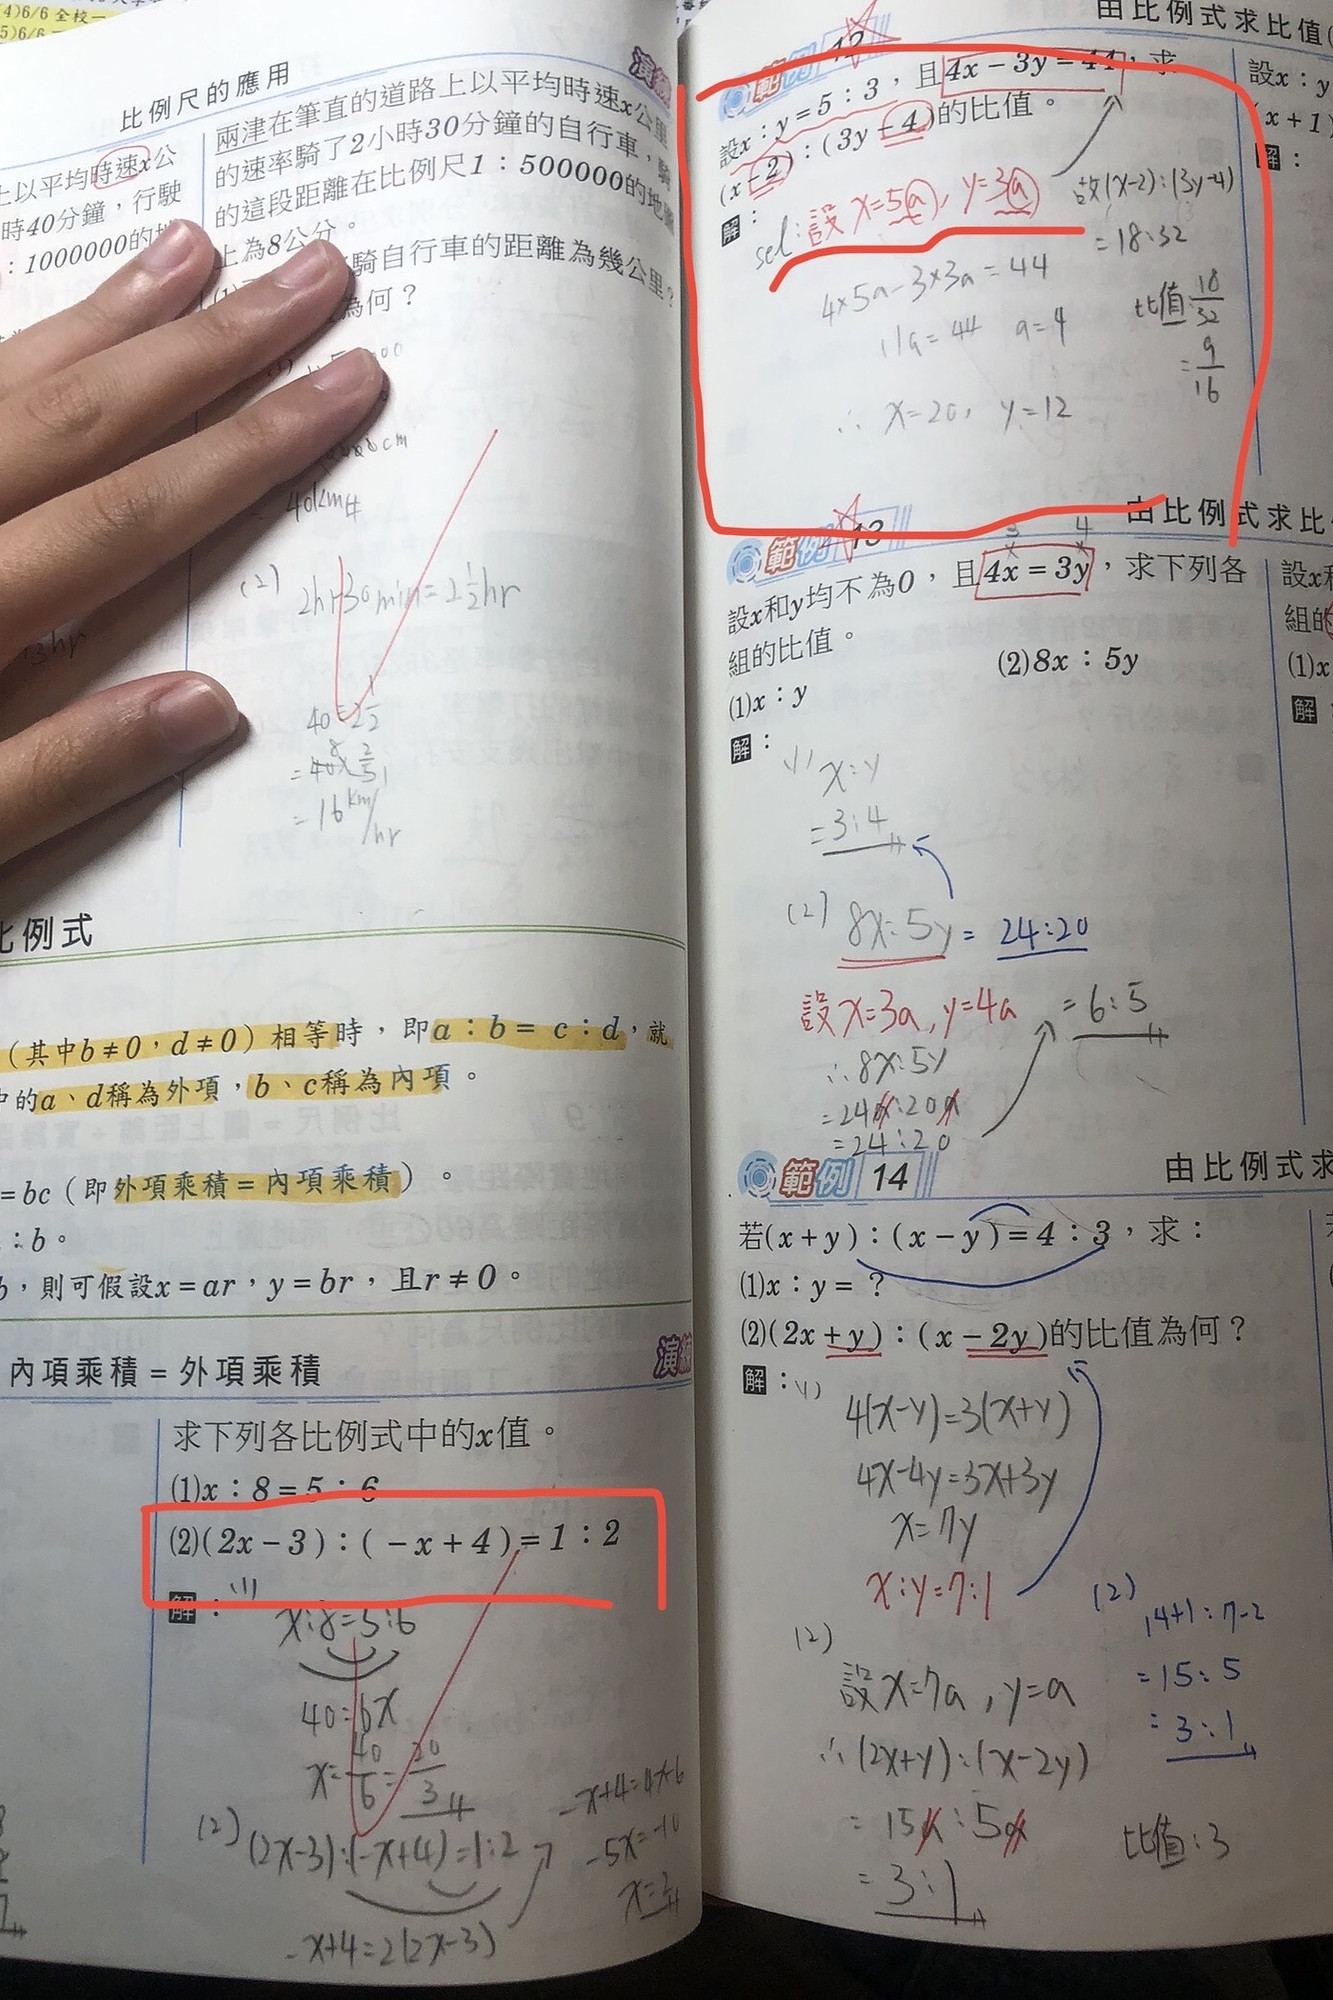 (4)6/6 全校一
5)6/6
比例尺的應用
演練
上以平均時速x公
時40分鐘，行駛
：1000000的地
兩津在筆直的道路上以平均時速x公里
的速率騎了2小時30分鐘的自行車，騎
的這段距離在比例尺1：500000的地圖
上為8公分。
騎自行車的距離為幾公里？
為何？
40km
(2) 2hr30min=2½hr
40÷2½
=40×2/5
=16km/hr
比例式
（其中b≠0，d≠0）相等時，即a：b＝c：d，就
中的a、d稱為外項，b、c稱為內項。
=bc（即外項乘積＝內項乘積）。
：b。
b，則可假設x＝ar，y＝br，且r≠0。
內項乘積＝外項乘積
演練
求下列各比例式中的x值。
(1)x：8＝5：6
(2)(2x－3)：(－x＋4)＝1：2
解：(1)
x:8=5:6
40=6x
x=40/6=20/3
(2) (2x-3):(-x+4)=1:2
-x+4=2(2x-3)
-x+4=4x-6
-5x=-10
x=2
由比例式求比值
範例 12
設x：y＝5：3，且4x－3y＝44，求
(x－2)：(3y－4)的比值。
解：
sol:設x=5a, y=3a
4×5a-3×3a=44
11a=44 a=4
∴ x=20, y=12
故(x-2):(3y-4)
=18:32
比值:18/32
=9/16
設x：y
(x＋1)
解：
範例 13
由比例式求比
3 4
設x和y均不為0，且4x＝3y，求下列各
組的比值。
(1)x：y
(2)8x：5y
解：
(1) x:y
=3:4
(2) 8x:5y=24:20
設x=3a, y=4a
∴8x:5y
=24a:20a
=24:20
=6:5
設x和
組的
(1)x
解：
範例 14
由比例式求
若(x＋y)：(x－y)＝4：3，求：
(1)x：y＝？
(2)(2x＋y)：(x－2y)的比值為何？
解：(1)
4(x-y)=3(x+y)
4x-4y=3x+3y
x=7y
x:y=7:1
(2)
設x=7a, y=a
∴(2x+y):(x-2y)
=15a:5a
=3:1
(2)
14+1:7-2
=15:5
=3:1
比值:3